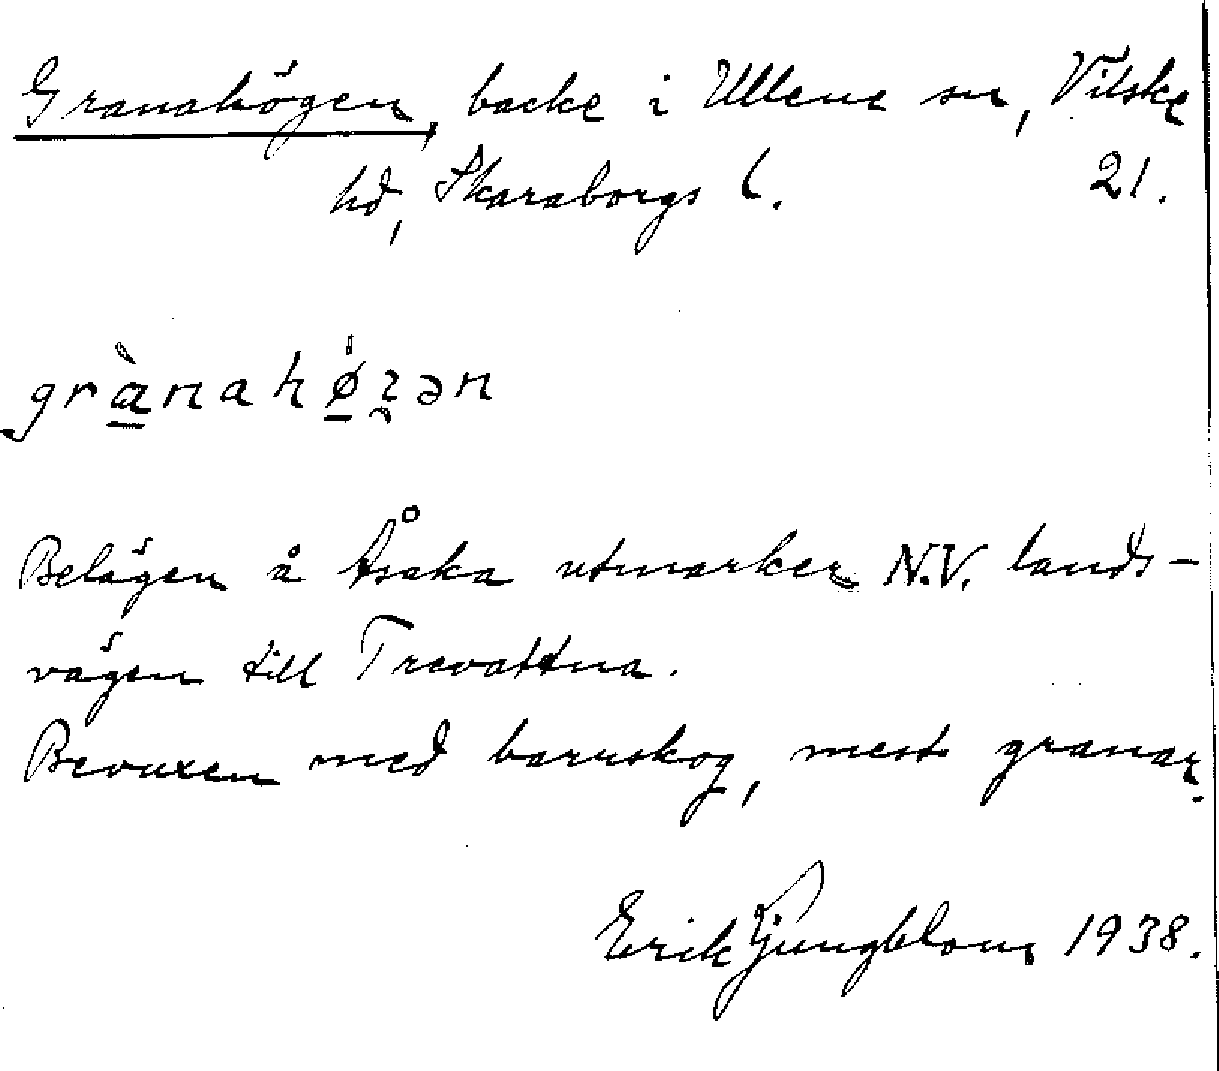 Granahögen, backe i Ullene sn, Vilske
hd, Skaraborgs l. 21.
grànahø̀ʒən
Belägen å Åsaka utmarker N.V. lands-
vägen till Trevattna.
Bevuxen med barrskog, mest granar.
Erik Ljungblom 1938.